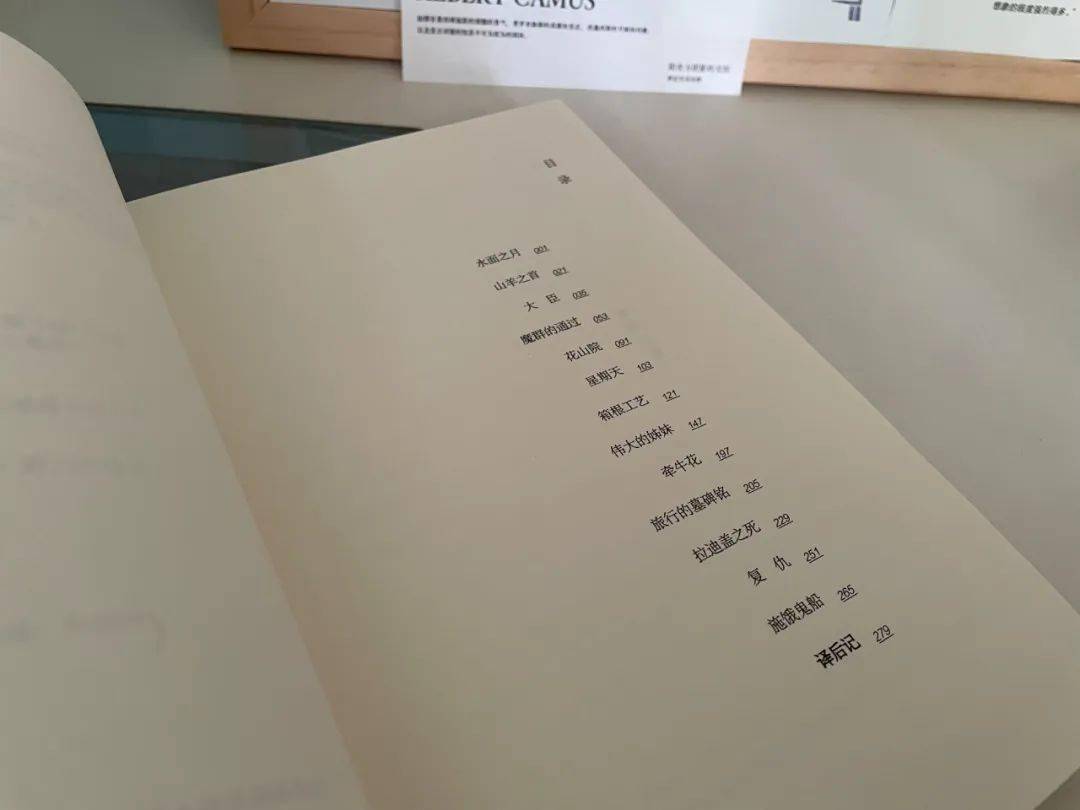 ALBERT CAMUS
目录
水面之月 001
山羊之首 021
大臣 035
魔群的通过 053
花山院 091
星期天 103
箱根工艺 121
伟大的姊妹 147
牵牛花 197
旅行的墓碑铭 205
拉迪盖之死 229
复仇 251
施饿鬼船 265
译后记 279